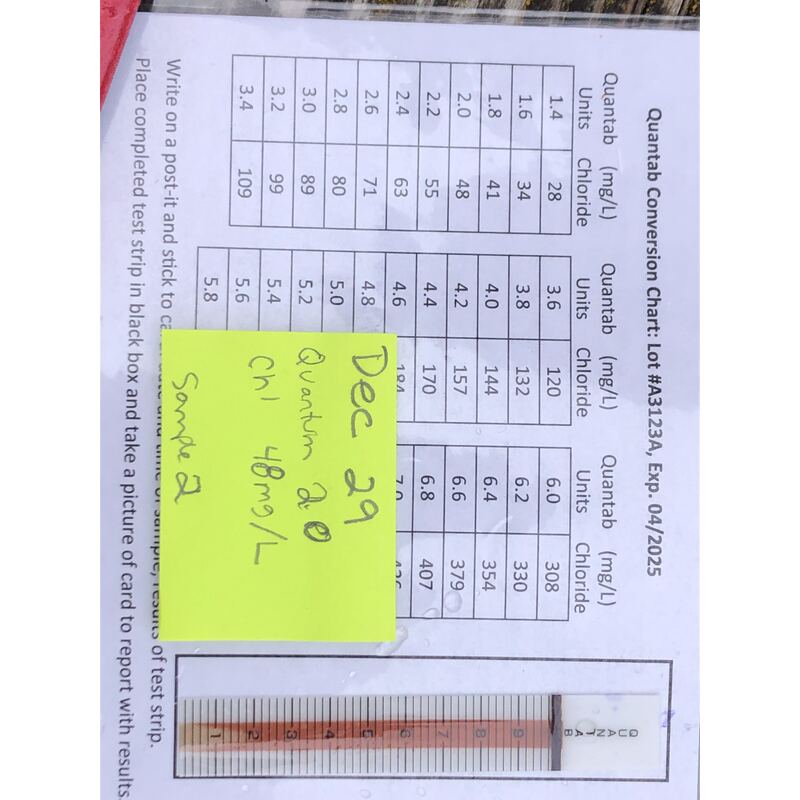 Quantab Conversion Chart: Lot #A3123A, Exp. 04/2025
Quantab Units (mg/L) Chloride
1.4 28
1.6 34
1.8 41
2.0 48
2.2 55
2.4 63
2.6 71
2.8 80
3.0 89
3.2 99
3.4 109
Quantab Units (mg/L) Chloride
3.6 120
3.8 132
4.0 144
4.2 157
4.4 170
4.6 184
4.8
5.0
5.2
5.4
5.6
5.8
Quantab Units (mg/L) Chloride
6.0 308
6.2 330
6.4 354
6.6 379
6.8 407
7.0 436
Dec 29
Quantum 2.0
Chl 48mg/L
Sample 2
Write on a post-it and stick to date and time of sample, results of test strip.
Place completed test strip in black box and take a picture of card to report with results.
QUANTAB
9
8
7
6
5
4
3
2
1